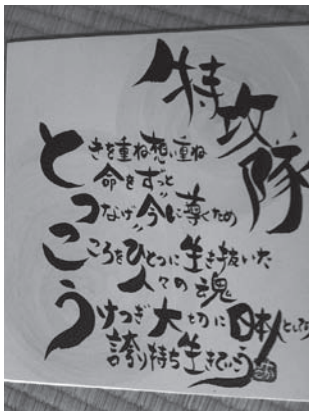 特攻隊
ときを重ね想い重ね
命をずっと
つなげ“今”に導くため
こころをひとつに生き抜いた
人々の魂
うけつぎ大切に日本人として
誇り持ち生きていこう